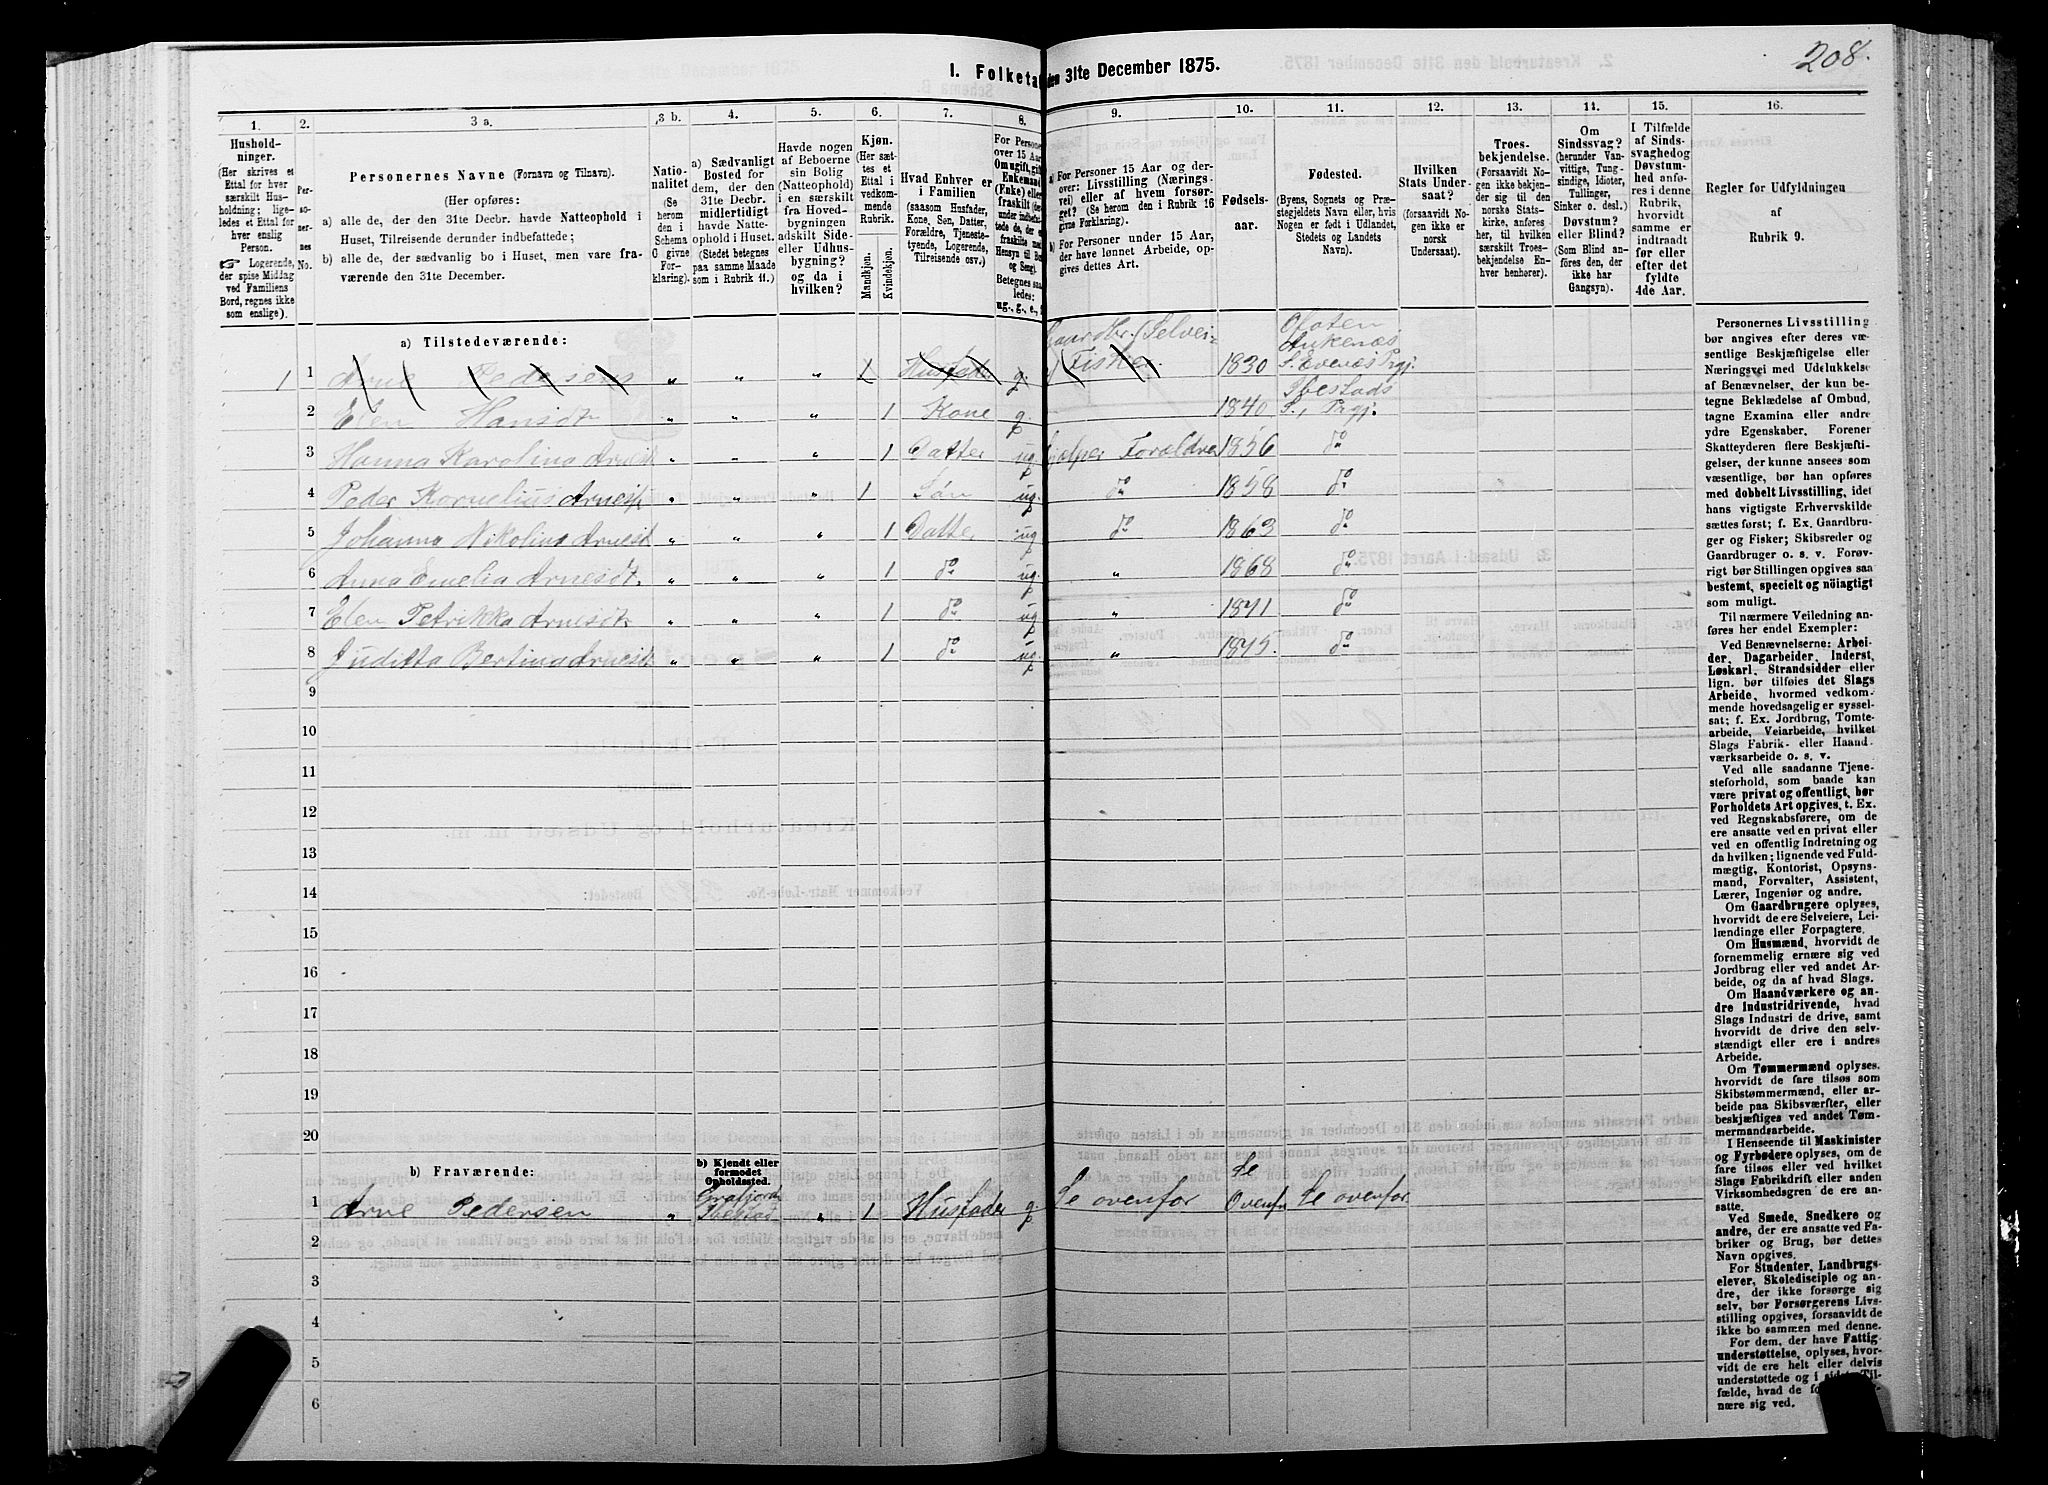 208.
I. Folketa
den 31te December 1875.
1. 2. 3 a. 3 b. 4. 5. 6. 7. 8. 9. 10. 11. 12. 13. 14. 15. 16.
Hushold-
ninger.
(Her skrives et
Ettal for hver
særskilt Hus-
holdning; lige-
ledes et Ettal for
hver enslig
Person.
☞ Logerende,
der spise Middag
ved Familiens
Bord, regnes ikke
som enslige).
Per-
so-
ner-
nes
No.
Personernes Navne (Fornavn og Tilnavn).
(Her opføres:
a) alle de, der den 31te Decbr. havde Natteophold i
Huset, Tilreisende derunder indbefattede;
b) alle de, der sædvanlig bo i Huset, men vare fra-
værende den 31te December.
Natio-
nalitet
(Se
herom
den i
Schema
G givne
For-
klaring).
a) Sædvanligt
Bosted for
dem, der den
31te Decbr.
midlertidigt
havde Natte-
ophold i Huset.
(Stedet betegnes
paa samme Maade
som i Rubrik 11.)
Havde nogen
af Beboerne
sin Bolig
(Natteophold)
i en særskilt
fra Hoved-
bygningen
adskilt Side-
eller Udhus-
bygning?
og da i
hvilken?
Kjøn.
(Her sæt-
tes et
Ettal i
vedkom-
mende
Rubrik.
Mandkjøn.
Kvindekjøn.
Hvad Enhver er
i Familien
(saasom Husfader,
Kone, Søn, Datter,
Forældre, Tjeneste-
tyende, Logerende,
Tilreisende osv.)
For Persone
over 15 Aar
Om ugift, gift
Enkemand
(Enke) eller
fraskilt
Betegnes saa-
ledes:
ug., g., e.,
a) For Personer 15 Aar og der-
over: Livsstilling (Nærings-
vei) eller af hvem forsør-
get? (Se herom den i Rubrik 16
givne Forklaring.)
b) For Personer under 15 Aar,
der have lønnet Arbeide, op-
gives dettes Art.
Fødsels-
aar.
Fødested.
(Byens, Sognets og Præ-
stegjeldets Navn eller, hvis
Nogen er født i Udlandet,
Stedets og Landets
Navn).
Hvilken
Stats Under-
saat?
(forsaavidt No-
gen ikke er
norsk
Undersaat).
Troes-
bekjendelse.
(Forsaavidt No-
gen ikke bekjen-
der sig til den
norske Stats-
kirke, anføres
her, til hvilken
særskilt Troes-
bekjendelse En-
hver henhører).
Om
Sindssvag?
(herunder Van-
vittige, Tung-
sindige, Idioter,
Tullinger,
Sinker o. desl.)
Døvstum?
eller Blind?
(Som Blind an-
føres den, der
ikke har
Gangsyn).
I Tilfælde
af Sinds-
svaghed og
Døvstum-
hed anfø-
res i denne
Rubrik,
hvorvidt
samme er
indtraadt
før eller
efter det
fyldte
4de Aar.
Regler for Udfyldningen
af
Rubrik 9.
a) Tilstedeværende:
1 1 Arne Pedersen „ „ „ 1 Husfader g. Gaardbr. (Selvei- Fisker 1830 Ofoten Ankenæs S. Evenæs Prgj.
2 Elen Hansdt „ „ „ 1 Kone g. 1840 Ibestads S., Prgj.
3 Hanna Karolina Arnesdt „ „ „ 1 Datter ug. hjælper Forældre 1856 do
4 Peder Kornelius Arnesen „ „ „ 1 Søn ug. do 1858 do
5 Johanna Nikolina Arnesdt „ „ „ 1 Datter ug. do 1863 do
6 Anna Emelia Arnesdt. „ „ „ 1 do ug. „ 1868 do
7 Elen Petrikka Arnesdt „ „ „ 1 do ug. „ 1871 do
8 Juditta Bertina Arnesdt „ „ „ 1 do ug. „ 1875. do
9
10
11
12
13
14
15
16
17
18
19
20
b) Fraværende:
b) Kjendt eller
formodet
Opholdssted.
1 Arne Pedersen „ Ibestad „ 1 Husfader g. Se ovenfor Se Ovenfor Se ovenfor
2
3
4
5
6
Personernes Livsstilling
bør angives efter deres væ-
sentlige Beskjæftigelse eller
Næringsvei med Udelukkelse
af Benævnelser, der kun be-
tegne Beklædelse af Ombud,
tagne Examina eller andre
ydre Egenskaber. Forener
Skatteyderen flere Beskjæfti-
gelser, der kunne ansees som
væsentlige, bør han opføres
med dobbelt Livsstilling, idet
hans vigtigste Erhvervskilde
sættes først; f. Ex. Gaardbru-
ger og Fisker; Skibsreder og
Gaardbruger o. s. v. Forøv-
rigt bør Stillingen opgives saa
bestemt, specielt og nöiagtigt
som muligt.
Til nærmere Veiledning an-
føres her endel Exempler:
Ved Benævnelserne: Arbei-
der, Dagarbeider, Inderst,
Løskarl, Strandsidder eller
lign. bør tilføies det Slags
Arbeide, hvormed vedkom-
mende hovedsagelig er syssel-
sat; f. Ex. Jordbrug, Tomte-
arbeide, Veiarbeide, hvilket
Slags Fabrik- eller Haand-
værksarbeide o. s. v.
Ved alle saadanne Tjene-
steforhold, som baade kan
være privat og offentligt, bør
Forholdets Art opgives, t. Ex.
ved Regnskabsførere, om de
ere ansatte ved en privat eller
ved en offentlig Indretning og
da hvilken; lignende ved Fuld-
mægtig, Kontorist, Opsyns-
mand, Forvalter, Assistent,
Lærer, Ingeniør og andre.
Om Gaardbrugere oplyses,
hvorvidt de ere Selveiere, Lei-
lændinge eller Forpagtere.
Om Husmænd, hvorvidt de
fornemmelig ernære sig ved
Jordbrug eller ved andet Ar-
beide, og da af hvad Slags.
Om Haandværkere og an-
dre Industridrivende, hvad
Slags Industri de drive, samt
hvorvidt de drive den selv-
stændigt eller ere i andres
Arbeide.
Om Tømmermænd oplyses,
hvorvidt de fare tilsøs som
Skibstømmermænd, eller ar-
beide paa Skibsværfter, eller
beskjæftiges ved andet Tøm-
mermandsarbeide.
I Henseende til Maskinister
og Fyrbødere oplyses, om de
fare tilsøs eller ved hvilket
Slags Fabrikdrift eller anden
Virksomhedsgren de ere an-
satte.
Ved Smede, Snedkere og
andre, der ere ansatte ved Fa-
briker og Brug, bør dettes
Navn opgives.
For Studenter, Landbrugs-
elever, Skoledisciple og an-
dre, der ikke forsørge sig
selv, bør Forsørgerens Livs-
stilling opgives, forsaavidt de
ikke bo sammen med denne.
For dem, der have Fattig-
understøttelse, oplyses, hvor-
vidt de ere helt eller delvis
understøttede og i sidste Til-
fælde, hvad de
nære sig ved.